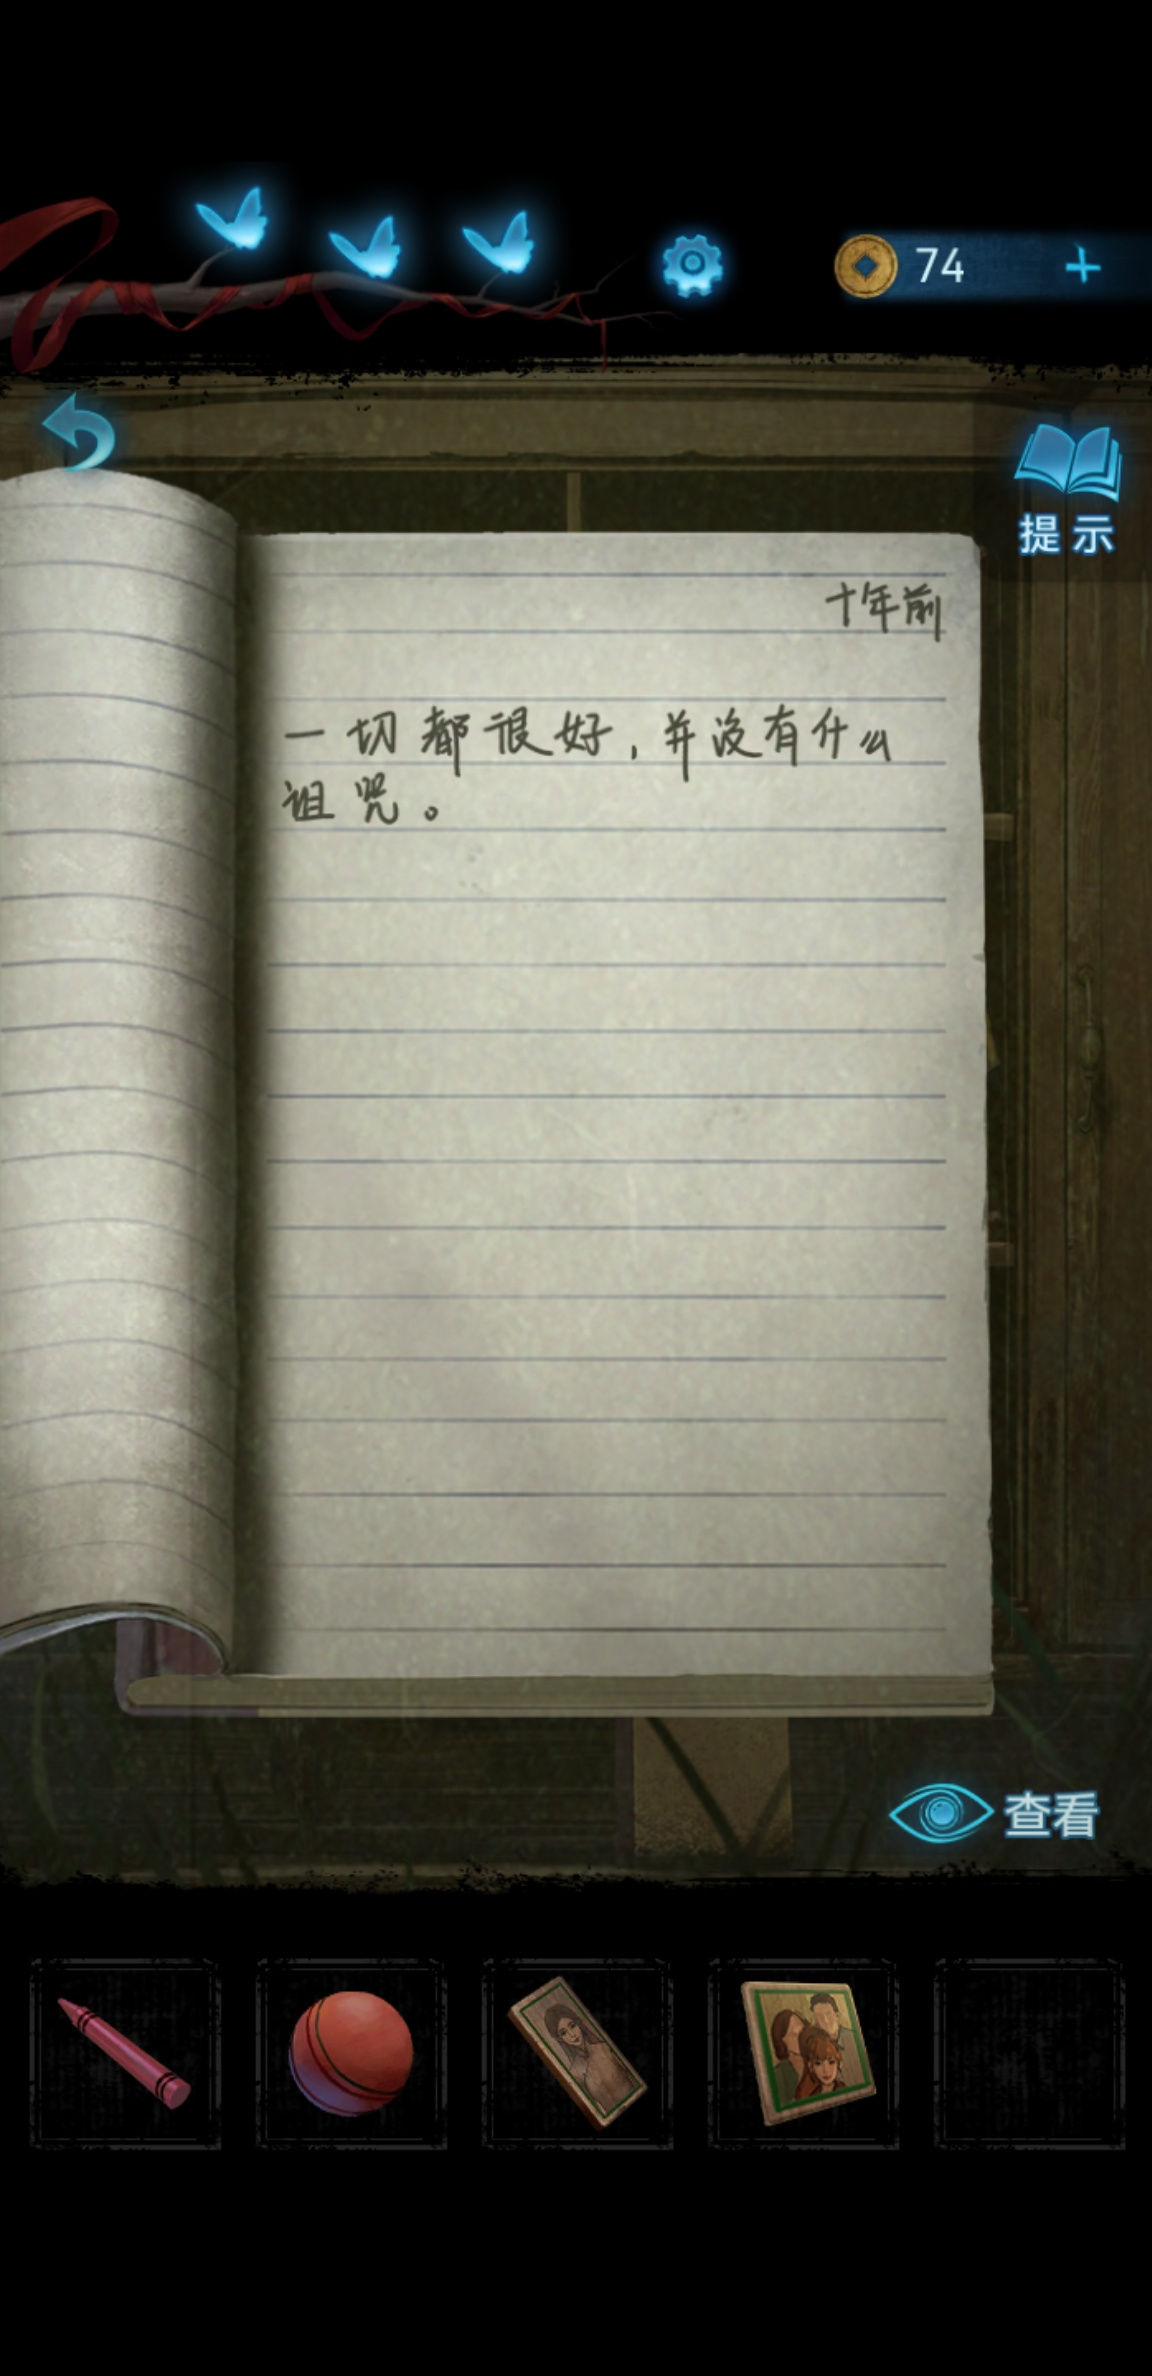 74
提示
十年前
一切都很好，并没有什么
诅咒。
查看